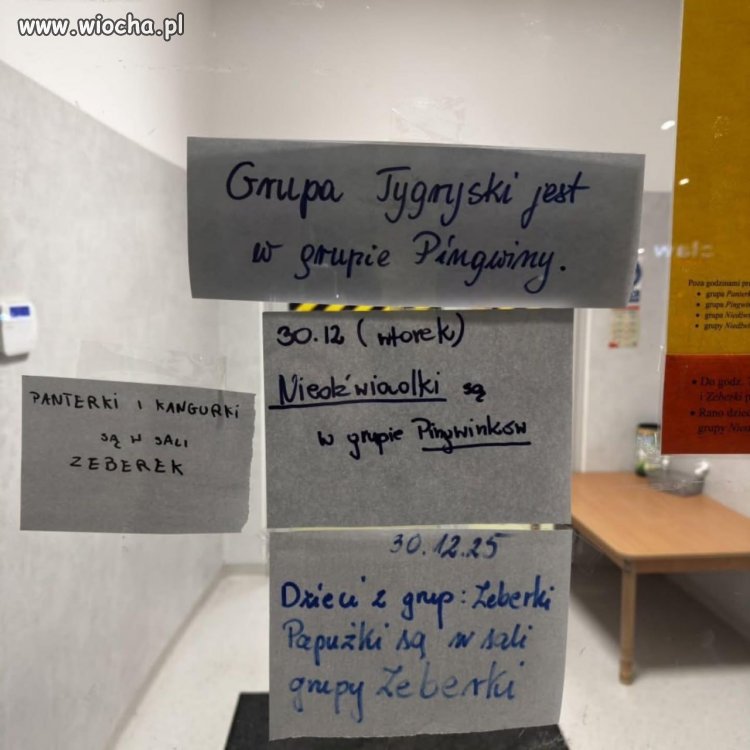 www.wiocha.pl
Grupa Tygryski jest
w grupie Pingwiny.
30.12 (wtorek)
Niedźwiadki są
w grupie Pingwinków
PANTERKI I KANGURKI
SĄ W SALI
ZEBEREK
30.12.25
Dzieci z grup: Zeberki
Papużki są w sali
grupy Zeberki
Poza godzinami
• grupa
• grupa
• grupa
• grupy
• Do godz.
i Zeberki
• Rano
grupy